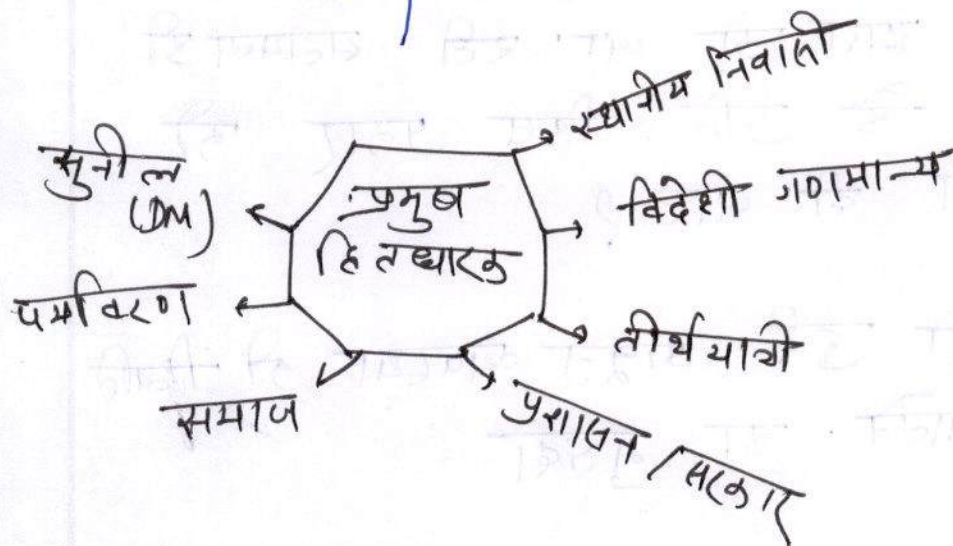 प्रमुख
हितधारक
स्थानीय निवासी
विदेशी गणमान्य
तीर्थयात्री
प्रशासन / सरकार
समाज
पर्यावरण
सुनील
(DM)